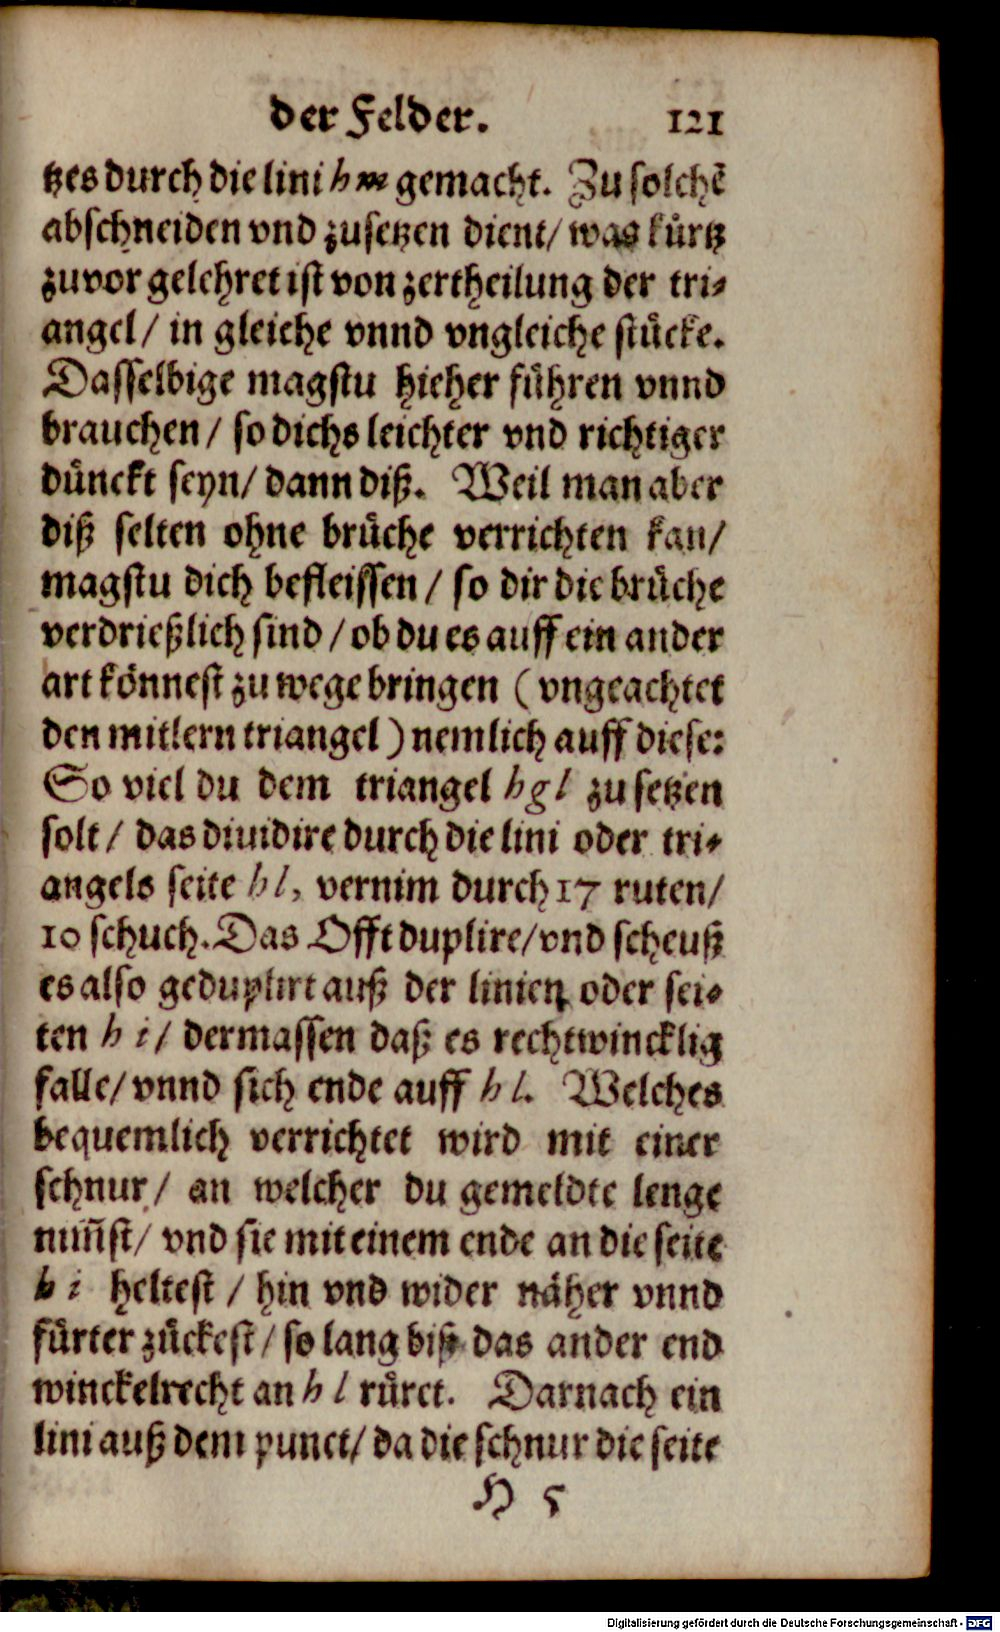 der Felder. 121
tzes durch die lini hm gemacht. Zu solchē
abschneiden vnd zusetzen dient/ was kürtz
zuvor gelehret ist von zertheilung der tri-
angel/ in gleiche vnnd vngleiche stücke.
Dasselbige magstu hieher führen vnnd
brauchen/ so dichs leichter vnd richtiger
dünckt seyn/ dann diß. Weil man aber
diß selten ohne brüche verrichten kan/
magstu dich befleissen/ so dir die brüche
verdrießlich sind/ ob du es auff ein ander
art könnest zu wege bringen (vngeachtet
den mitlern triangel) nemlich auff diese:
So viel du dem triangel hgl zu setzen
solt/ das dividire durch die lini oder tri-
angels seite hl, vernim durch 17 ruten/
10 schuch. Das Offt duplire/ vnd scheuß
es also geduplirt auß der linien oder sei-
ten h i/ dermassen daß es rechtwincklig
falle/ vnnd sich ende auff h l. Welches
bequemlich verrichtet wird mit einer
schnur/ an welcher du gemeldte lenge
nim̄st/ vnd sie mit einem ende an die seite
h i heltest/ hin vnd wider näher vnnd
fürter zückest/ so lang biß das ander end
winckelrecht an h l rüret. Darnach ein
lini auß dem punct/ da die schnur die seite
H 5
Digitalisierung gefördert durch die Deutsche Forschungsgemeinschaft - DFG